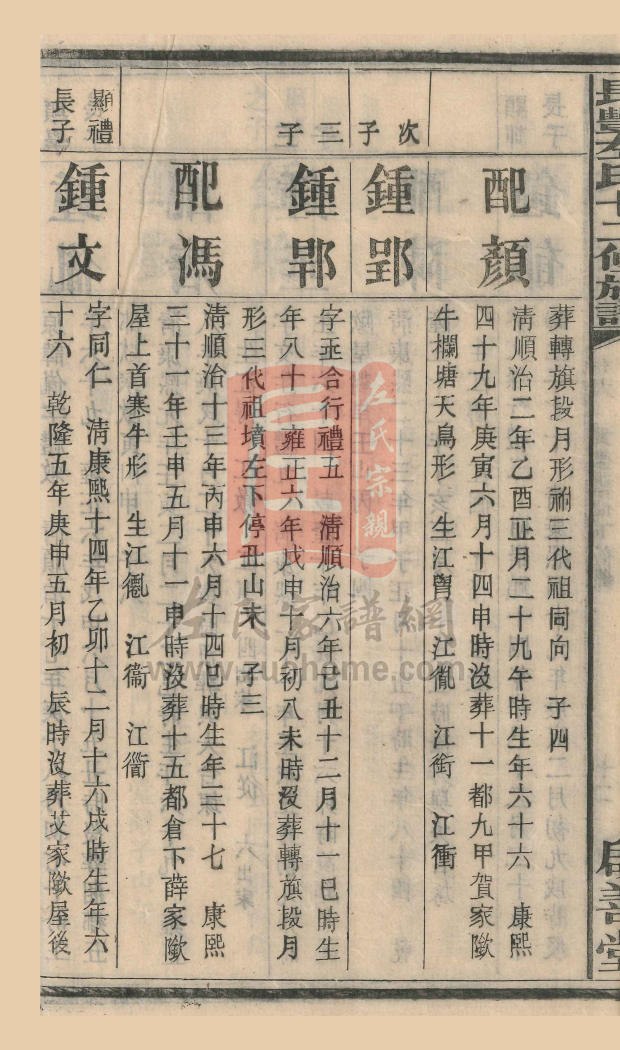 長豐左氏十二修族譜
啟善堂
葬轉旗段月形祔三代祖同向 子四
配顏
清順治二年乙酉正月二十九午時生年六十六 康熙
四十九年庚寅六月十四申時沒葬十一都九甲賀家㘭
牛欄塘天鳥形 生江 江 江銜 江衝
次子
鍾郢
三子
鍾鄂
字丞合行禮五 清順治六年己丑十二月十一巳時生
年八十 雍正六年戊申十月初八未時沒葬轉旗段月
形三代祖墳左下停丑山未 子三
配馮
清順治十三年丙申六月十四巳時生年三十七 康熙
三十一年壬申五月十一申時沒葬十五都倉下薛家
屋上首寒牛形 生江 江衞 江
顯禮長子
鍾文
字同仁 清康熙十四年乙卯十二月十六戌時生年六
十六 乾隆五年庚申五月初一辰時沒葬艾家屋後
左氏宗親
左氏家譜網
www.zuohome.com